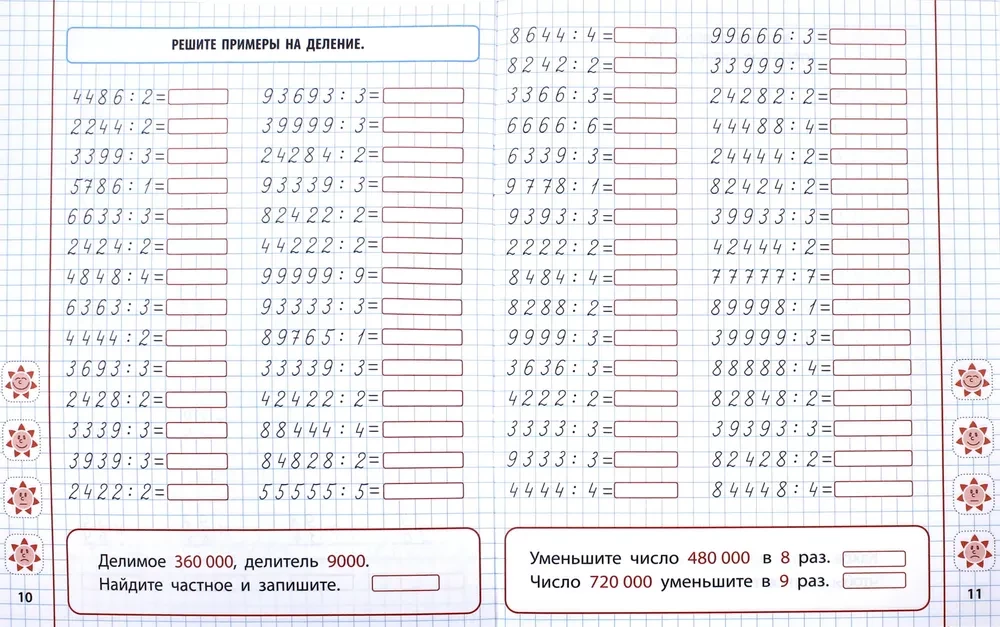 РЕШИТЕ ПРИМЕРЫ НА ДЕЛЕНИЕ.
4486:2=
2244:2=
3399:3=
5786:1=
6633:3=
2424:2=
4848:4=
6363:3=
4444:2=
3693:3=
2428:2=
3339:3=
3939:3=
2422:2=
93693:3=
39999:3=
24284:2=
93339:3=
82422:2=
44222:2=
99999:9=
93333:3=
89765:1=
33339:3=
42422:2=
88444:4=
84828:2=
55555:5=
Делимое 360 000, делитель 9000.
Найдите частное и запишите.
10
8644:4=
8242:2=
3366:3=
6666:6=
6339:3=
9778:1=
9393:3=
2222:2=
8484:4=
8288:2=
9999:3=
3636:3=
4222:2=
3333:3=
9333:3=
4444:4=
99666:3=
33999:3=
24282:2=
44488:4=
24444:2=
82424:2=
39933:3=
42444:2=
77777:7=
89998:1=
39999:3=
88888:4=
82848:2=
39393:3=
82428:2=
84448:4=
Уменьшите число 480 000 в 8 раз.
Число 720 000 уменьшите в 9 раз.
11